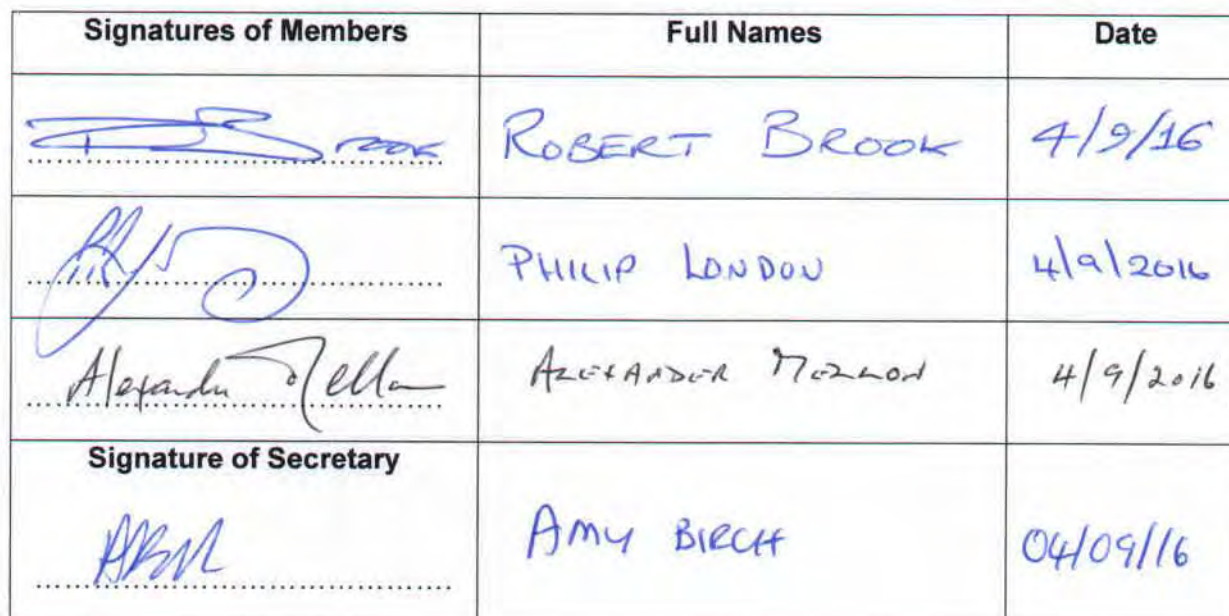 Signatures of Members Full Names Date
Brook ROBERT BROOK 4/9/16
PHILIP LONDON 4/9/2016
Alexander Mellon ALEXANDER MELLON 4/9/2016
Signature of Secretary
AMY BIRCH 04/09/16